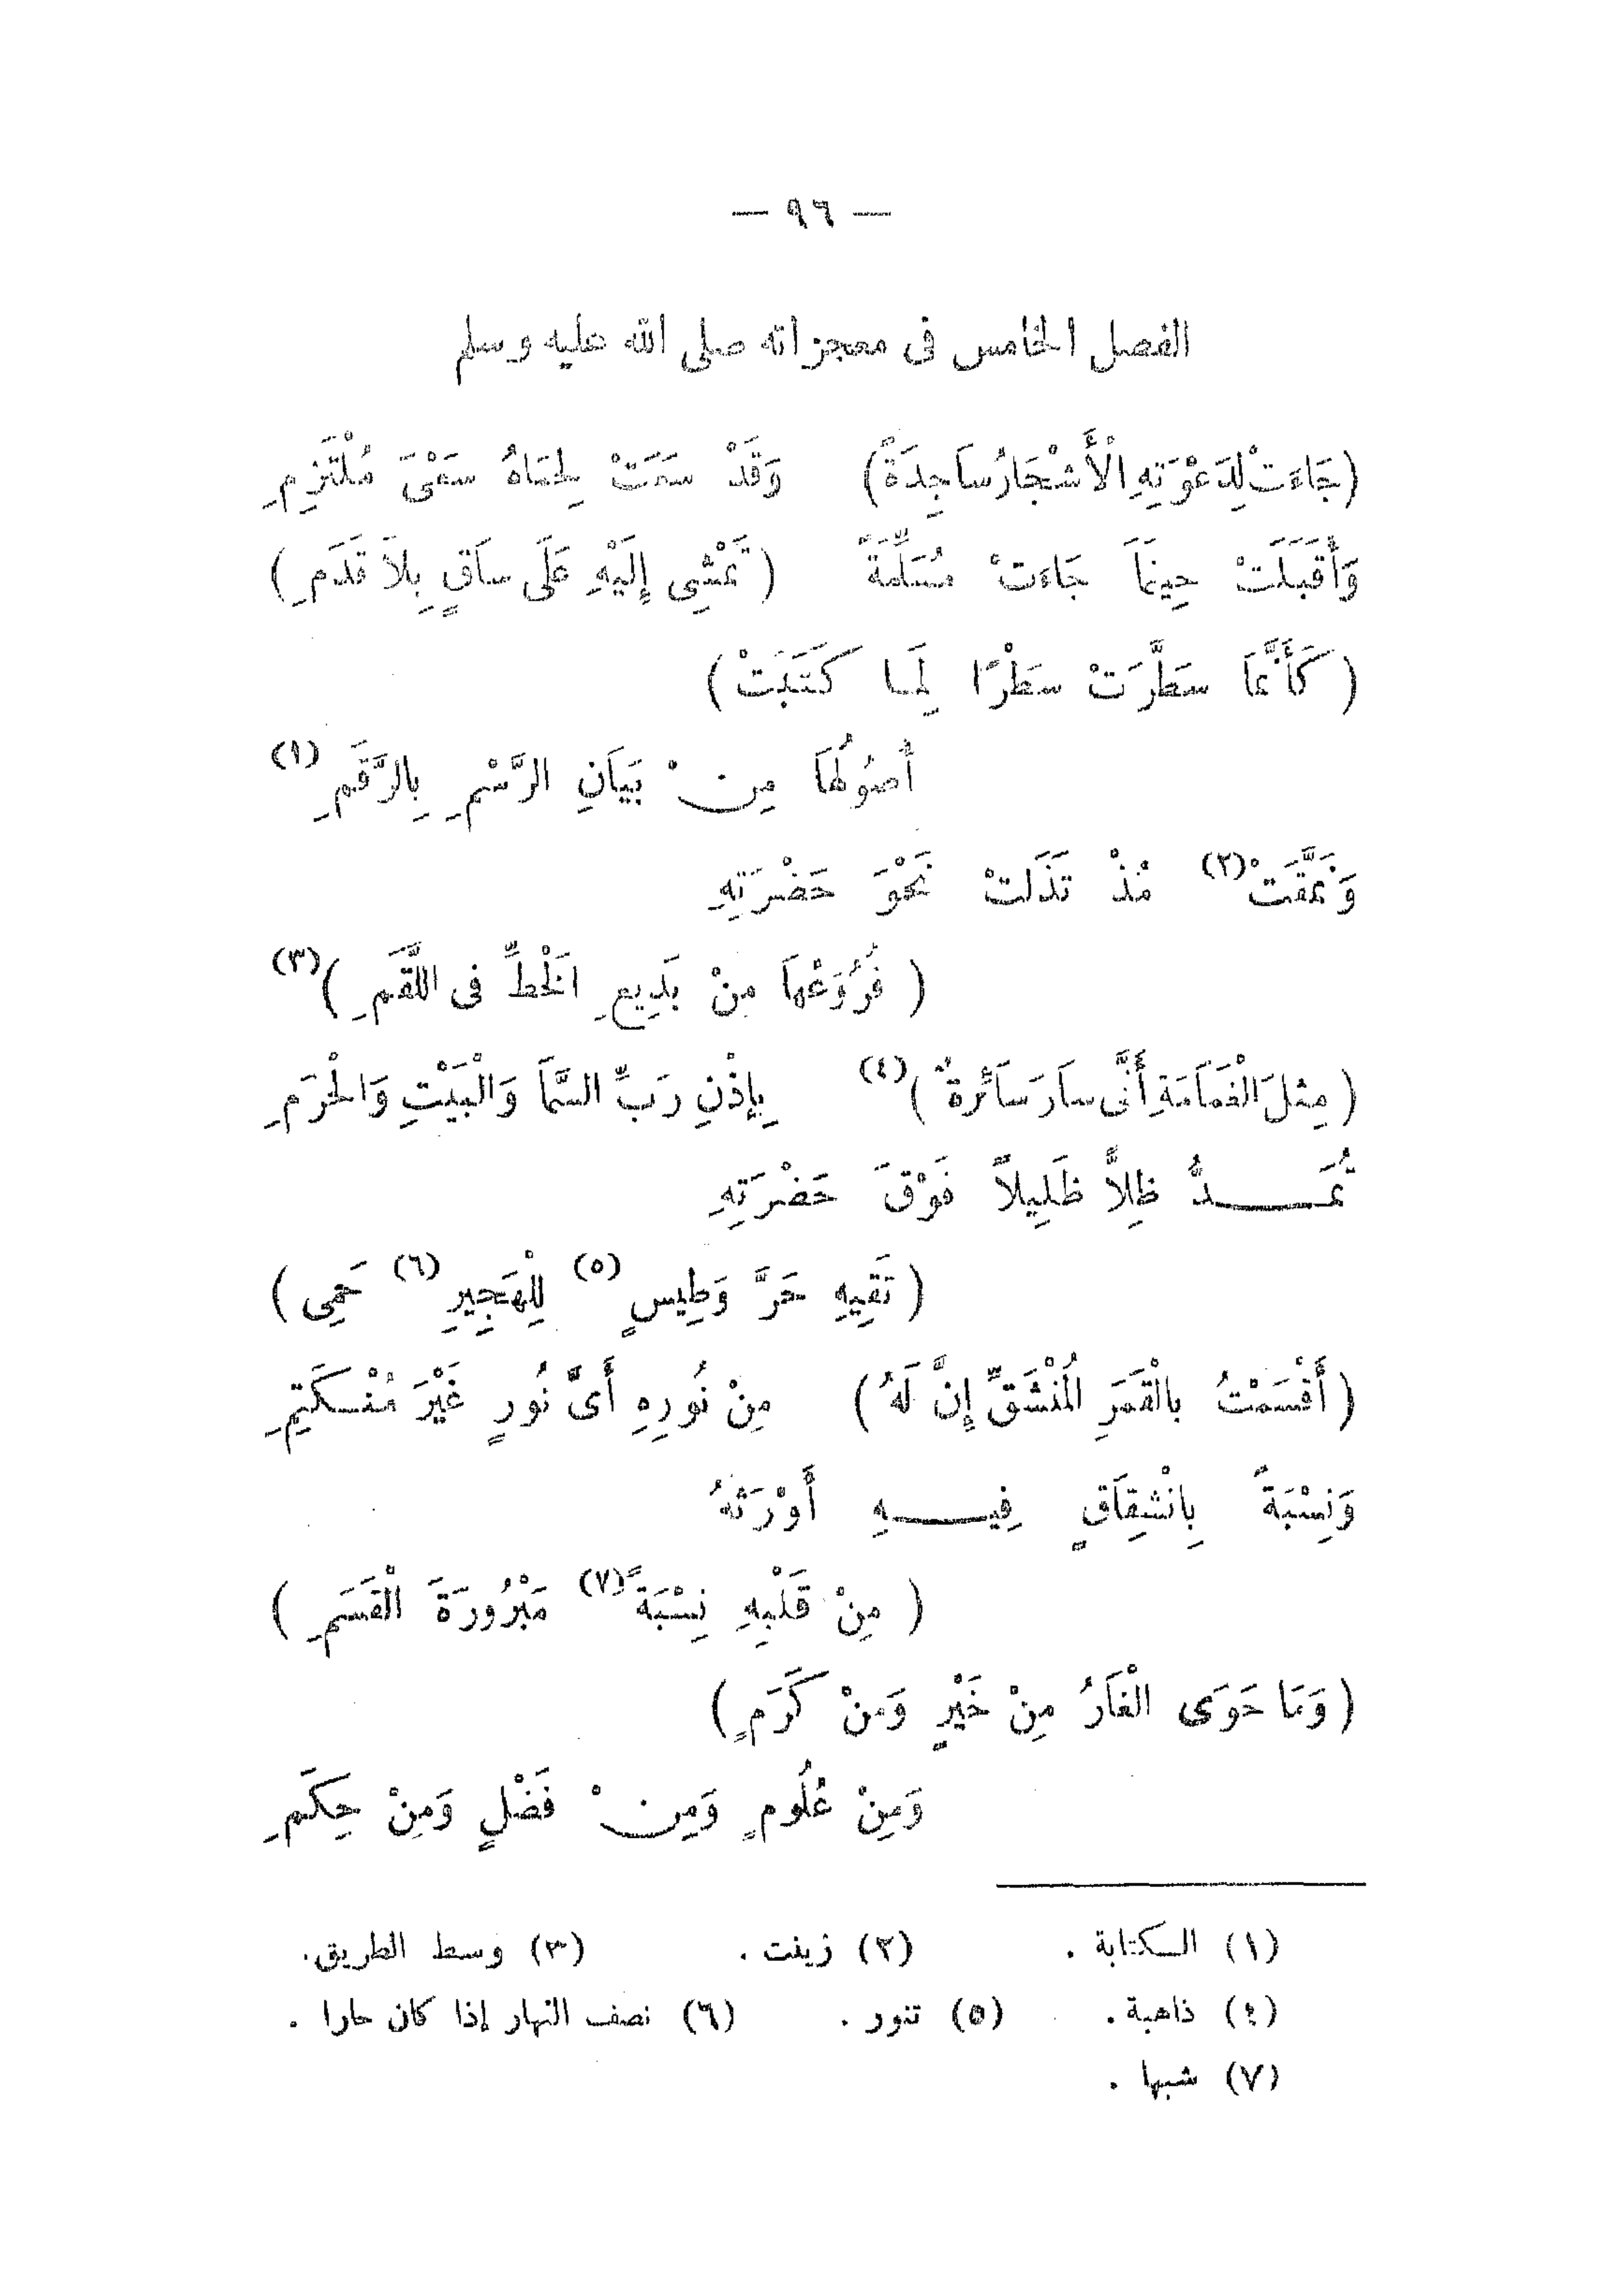 — ٩٦ —
الفصل الخامس فى معجزاته صلى الله عليه وسلم
(جَاءَتْ لِدَعْوَتِهِ الْأَشْجَارُ سَاجِدَةً) وَقَدْ سَعَتْ لِحِمَاهُ سَعْىَ مُلْتَزِمِ
وَأَقْبَلَتْ حِينَمَا جَاءَتْ مُسَلِّمَةً (تَمْشِى إِلَيْهِ عَلَى سَاقٍ بِلاَ قَدَمِ)
(كَأَنَّمَا سَطَّرَتْ سَطْرًا لِمَا كَتَبَتْ)
أُصُولُهَا مِنْ بَيَانِ الرَّسْمِ بِالرَّقَمِ (١)
وَنَمَّقَتْ (٢) مُذْ تَدَلَتْ نَحْوَ حَضْرَتِهِ
(فُرُوعُهَا مِنْ بَدِيعِ الْخَطِّ فى اللَّقَمِ) (٣)
(مِثْلَ الْغَمَامَةِ أَنَّى سَارَ سَائِرَةٌ) (٤) بِإِذْنِ رَبِّ السَّمَا وَالْبَيْتِ وَالْحَرَمِ
تُمَدُّ ظِلاًّ ظَلِيلاً فَوْقَ حَضْرَتِهِ
(تَقِيهِ حَرَّ وَطِيسٍ (٥) لِلْهَجِيرِ (٦) حَمِى)
(أَقْسَمْتُ بالْقَمَرِ الْمُنْشَقِّ إِنَّ لَهُ) مِنْ نُورِهِ أَىَّ نُورٍ غَيْرَ مُنْكَتِمِ
وَنِسْبَةً بِانْشِقَاقٍ فِيهِ أَوْرَثَهُ
(مِنْ قَلْبِهِ نِسْبَةً (٧) مَبْرُورَةَ الْقَسَمِ)
(وَمَا حَوَى الْغَارُ مِنْ خَيْرٍ وَمِنْ كَرَمٍ)
وَمِنْ عُلُومٍ وَمِنْ فَضْلٍ وَمِنْ حِكَمِ
(١) الكتابة . (٢) زينت . (٣) وسط الطريق.
(٤) ذاهبة . (٥) تنور . (٦) نصف النهار إذا كان حارا .
(٧) شبها .